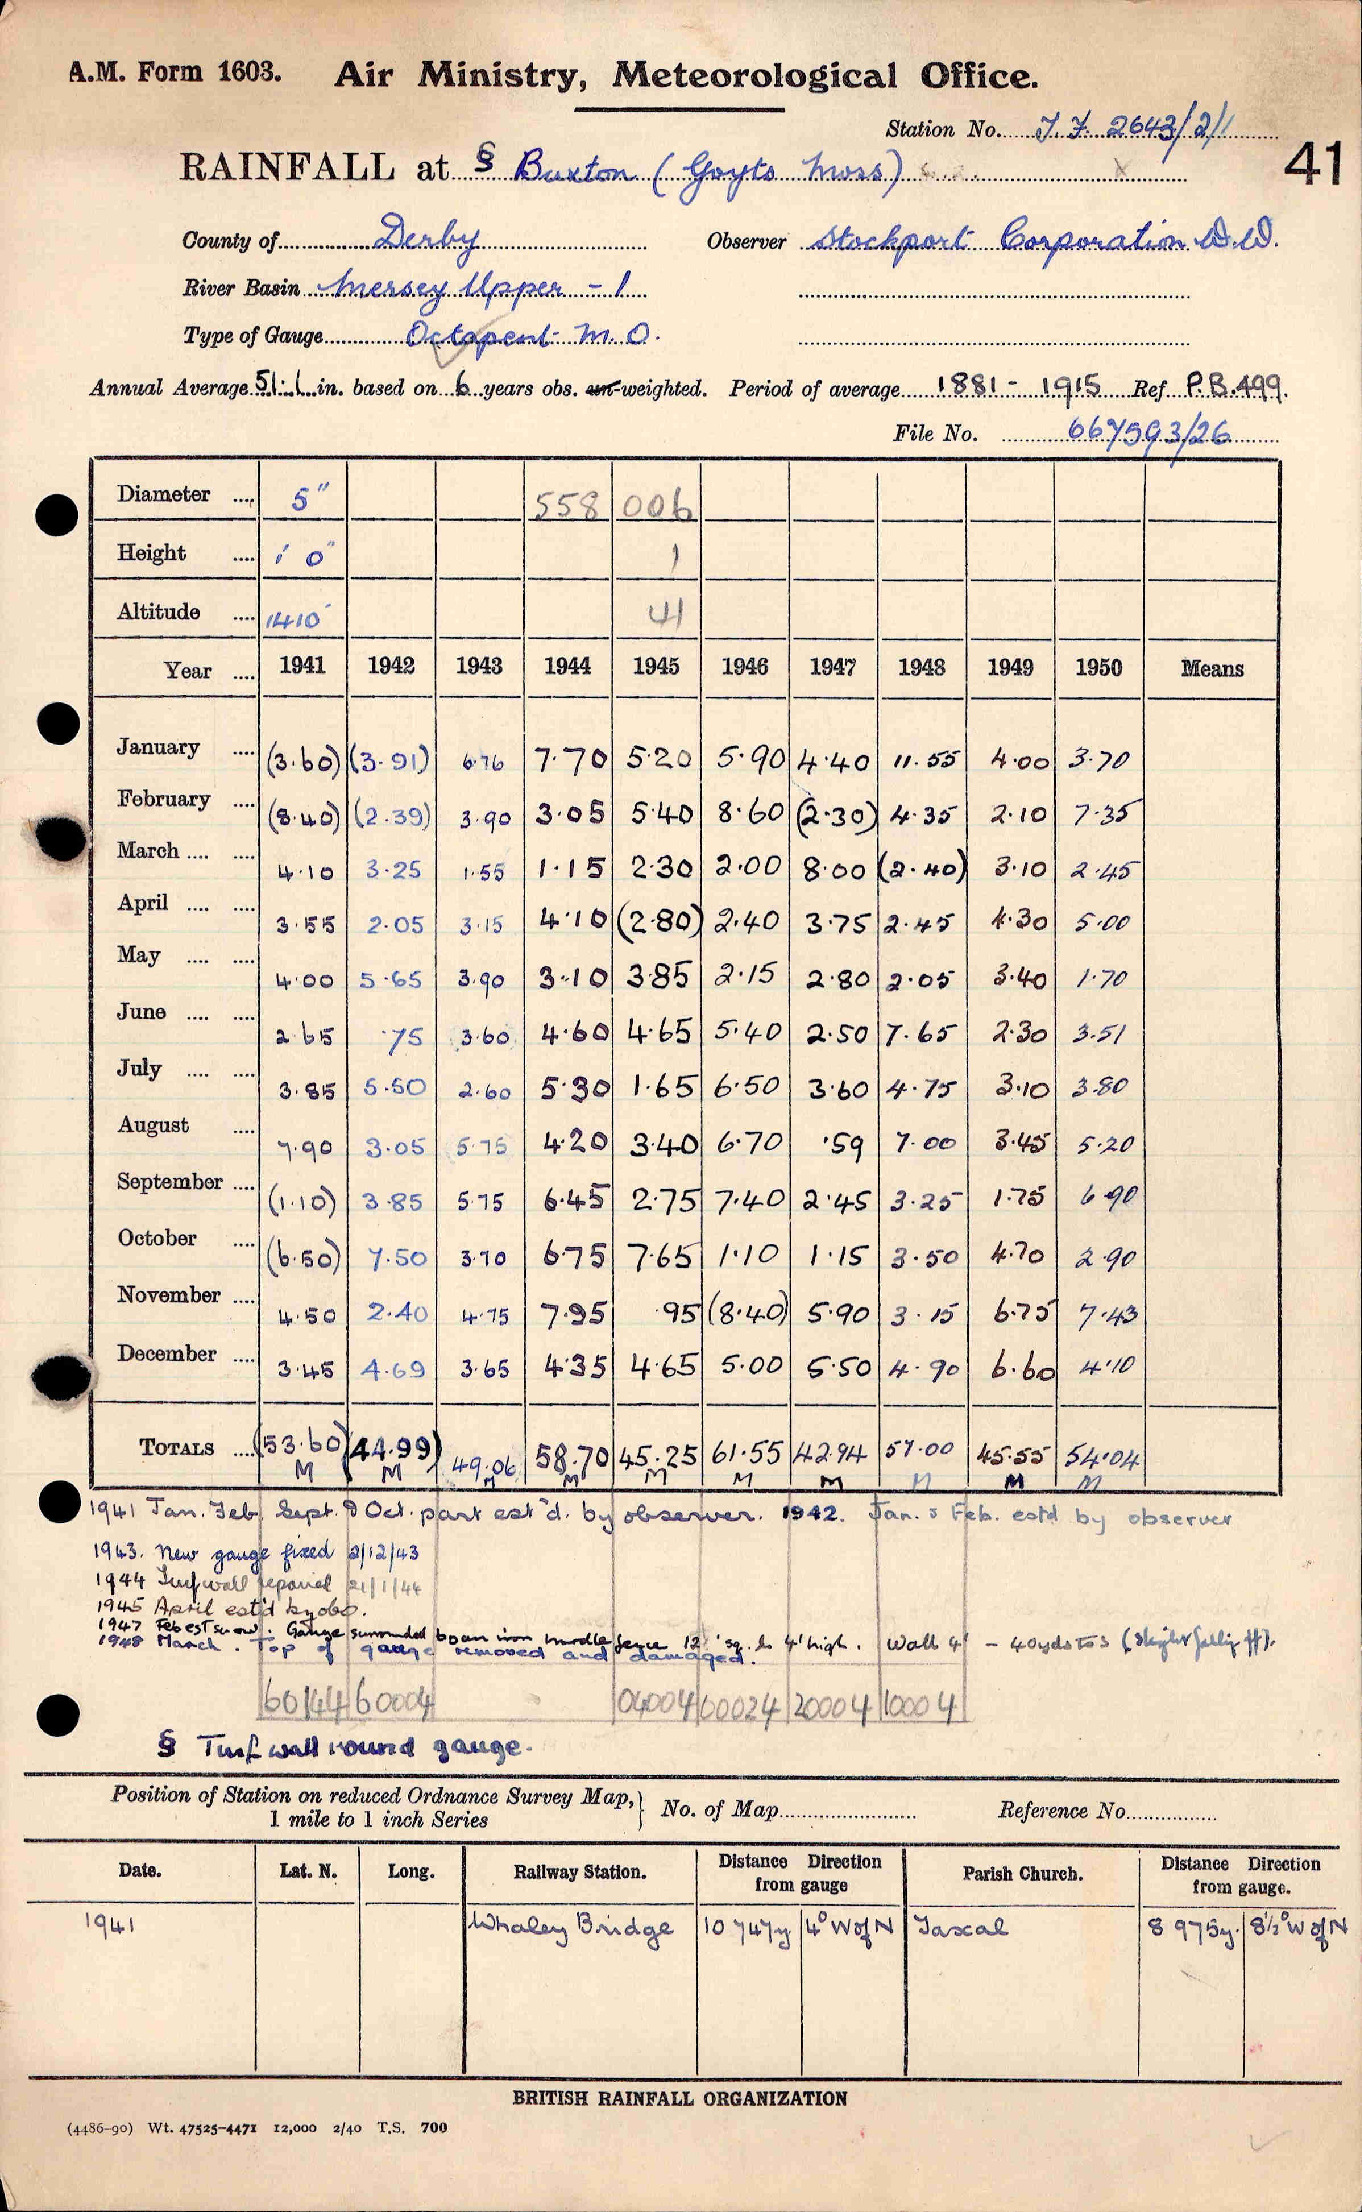 A.M. Form 1603. Air Ministry, Meteorological Office.
Station No. J.F. 2643/2/1
41
RAINFALL at § Buxton (Goyts Moss)
County of Derby Observer Stockport Corporation W.W.
River Basin Mersey Upper - 1
Type of Gauge Octapent M.O.
Annual Average 51.1 in. based on 6 years obs. un-weighted. Period of average 1881 - 1915 Ref P.B.499.
File No. 667593/26
Diameter .... 5" 558 006
Height .... 1' 0" 1
Altitude .... 1410' 41
Year .... 1941 1942 1943 1944 1945 1946 1947 1948 1949 1950 Means
January .... (3.60) (3.91) 6.76 7.70 5.20 5.90 4.40 11.55 4.00 3.70
February .... (8.40) (2.39) 3.90 3.05 5.40 8.60 (2.30) 4.35 2.10 7.35
March .... .... 4.10 3.25 1.55 1.15 2.30 2.00 8.00 (2.40) 3.10 2.45
April .... .... 3.55 2.05 3.15 4.10 (2.80) 2.40 3.75 2.45 4.30 5.00
May .... .... 4.00 5.65 3.90 3.10 3.85 2.15 2.80 2.05 3.40 1.70
June .... .... 2.65 .75 3.60 4.60 4.65 5.40 2.50 7.65 2.30 3.51
July .... .... 3.85 5.50 2.60 5.30 1.65 6.50 3.60 4.75 3.10 3.80
August .... 7.90 3.05 5.75 4.20 3.40 6.70 .59 7.00 3.45 5.20
September .... (1.10) 3.85 5.75 6.45 2.75 7.40 2.45 3.25 1.75 6.90
October .... (6.50) 7.50 3.70 6.75 7.65 1.10 1.15 3.50 4.70 2.90
November .... 4.50 2.40 4.75 7.95 .95 (8.40) 5.90 3.15 6.75 7.43
December .... 3.45 4.69 3.65 4.35 4.65 5.00 5.50 4.90 6.60 4.10
TOTALS .... (53.60) (44.99) 49.06 58.70 45.25 61.55 42.94 57.00 45.55 54.04
M M M M M M M M M M
1941 Jan. Feb. Sept. & Oct. part est'd. by observer. 1942. Jan. & Feb. estd by observer
1943. New gauge fixed 2/12/43
1944 Turf wall repaired 21/1/44
1945 April est'd by obs.
1947 Feb est snow. Gauge surrounded by an iron hurdle fence 12' sq. & 4' high. Wall 4' - 40yds to S (slight falling off).
1948 March. Top of gauge removed and damaged.
60144 60004 04004 00024 20004 10004
§ Turf wall round gauge.
Position of Station on reduced Ordnance Survey Map, } No. of Map Reference No.
1 mile to 1 inch Series
Date. Lat. N. Long. Railway Station. Distance Direction from gauge Parish Church. Distance Direction from gauge.
1941 Whaley Bridge 10 747y 4° W of N Taxal 8 975y. 8½° W of N
BRITISH RAINFALL ORGANIZATION
(4486-90) Wt. 47525-4471 12,000 2/40 T.S. 700